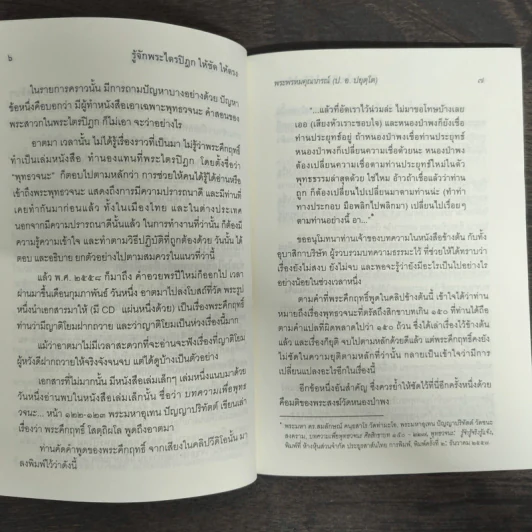 ๖
รู้จักพระไตรปิฎก ให้ชัด ให้ตรง
ในรายการคราวนั้น มีการถามปัญหาบางอย่างด้วย ปัญหา
ข้อหนึ่งคือบอกว่า มีผู้ทำหนังสือเอาเฉพาะพุทธวจนะ คำสอนของ
พระสาวกในพระไตรปิฎก ก็ไม่เอา จะว่าอย่างไร
อาตมา เวลานั้น ไม่ได้รู้เรื่องราวที่เป็นมา ไม่รู้ว่าพระคึกฤทธิ์
ทำเป็นเล่มหนังสือ ทำนองแทนที่พระไตรปิฎก โดยตั้งชื่อว่า
"พุทธวจนะ" ก็ตอบไปตามหลักว่า การช่วยให้คนได้รู้ได้อ่านหรือ
เข้าถึงพระพุทธวจนะ แสดงถึงการมีความปรารถนาดี และมีท่านที่
เคยทำกันมาก่อนแล้ว ทั้งในเมืองไทย และในต่างประเทศ
นอกจากมีความปรารถนาดีนั้นแล้ว ในการทำงานที่ว่านั้น ก็ต้องมี
ความรู้ความเข้าใจ และทำตามวิธีปฏิบัติที่ถูกต้องด้วย วันนั้น ได้
ตอบ และอธิบาย ยกตัวอย่างไปตามสมควรในแนวที่ว่านี้
แล้ว พ.ศ. ๒๕๕๘ ก็มาถึง คำอวยพรปีใหม่ก็ออกไป เวลา
ผ่านมาขึ้นเดือนกุมภาพันธ์ วันหนึ่ง อาตมาไปลงโบสถ์ที่วัด พระรูป
หนึ่งนำเอกสารมาให้ (มี CD แผ่นหนึ่งด้วย) เป็นเรื่องพระคึกฤทธิ์
ท่านว่ามีญาติโยมฝากถวาย และว่าญาติโยมห่วงเรื่องนี้มาก
แม้ว่าอาตมาไม่มีเวลาสะดวกที่จะอ่านจะฟังเรื่องที่ญาติโยม
ผู้หวังดีฝากถวายให้จริงจังจนจบ แต่ได้ดูบ้างเป็นตัวอย่าง
เอกสารที่ไม่มากนั้น มีหนังสือเล่มเล็กๆ เล่มหนึ่งแนบมาด้วย
วันหนึ่งอ่านพบในหนังสือเล่มเล็กนั้น ชื่อว่า บทความเพื่อพุทธ
วจนะ... หน้า ๑๒๒-๑๒๓ พระมหาอุเทน ปัญญาปริทัตต์ เขียนเล่า
เรื่องว่า พระคึกฤทธิ์ โสตฺถิผโล พูดถึงอาตมา
ท่านคัดคำพูดของพระคึกฤทธิ์ จากเสียงในคลิปวีดีโอนั้น มา
ลงพิมพ์ไว้ว่าดังนี้
พระพรหมคุณาภรณ์ (ป. อ. ปยุตฺโต)
๗
"...แล้วก็อัดเราไว้น่วมล่ะ ไม่มาขอโทษบ้างเลย
เออ (เสียงหัวเราะชอบใจ) และหนองป่าพงก็ยังเชื่อ
ท่านประยุทธ์อยู่ ถ้าหนองป่าพงเชื่อท่านประยุทธ์
หนองป่าพงก็เปลี่ยนความเชื่อด้วยนะ หนองป่าพง
ต้องเปลี่ยนความเชื่อตามท่านประยุทธ์ใหม่ในตัว
พุทธธรรมล่าสุดด้วย ใช่ไหม อ้าวถ้าเชื่อแล้วท่าน
ถูก ก็ต้องเปลี่ยนไปเปลี่ยนมาตามน่ะ (ทำท่า
ทางประกอบ มือพลิกไปพลิกมา) เปลี่ยนไปเรื่อยๆ
ตามท่านอย่างนี้ อา..."*
ขออนุโมทนาท่านเจ้าของบทความในหนังสือข้างต้น กับทั้ง
อุบาสิกาบริษัท ผู้รวบรวมบทความธรรมะไว้ ที่ช่วยให้ได้ทราบว่า
เรื่องยังไม่สงบ ยังไม่จบ และพอจะรู้ว่ายังมีอะไรเป็นไปอย่างไร
อย่างน้อยในช่วงเวลาหนึ่ง
ตามคำที่พระคึกฤทธิ์พูดในคลิปข้างต้นนี้ เข้าใจได้ว่าท่าน
หมายถึงเรื่องพุทธวจนะที่ตรัสถึงสิกขาบทเกิน ๑๕๐ ที่ท่านได้ถือ
ตามคำแปลที่ผิดพลาดไปว่า ๑๕๐ ถ้วน ซึ่งได้เล่าเรื่องไว้ข้างต้น
แล้ว และเรื่องก็ยุติ จบไปตามหลักด้วยดีแล้ว แต่พระคึกฤทธิ์คงยัง
ไม่ชัดในความยุติตามหลักที่ว่านั้น กลายเป็นเข้าใจว่ามีการ
เปลี่ยนแปลงอะไรอีกในเรื่องนี้
อีกข้อหนึ่งอันสำคัญ ซึ่งควรย้ำให้ชัดไว้ที่นี่อีกครั้งหนึ่งด้วย
คือมติของพระสงฆ์วัดหนองป่าพง